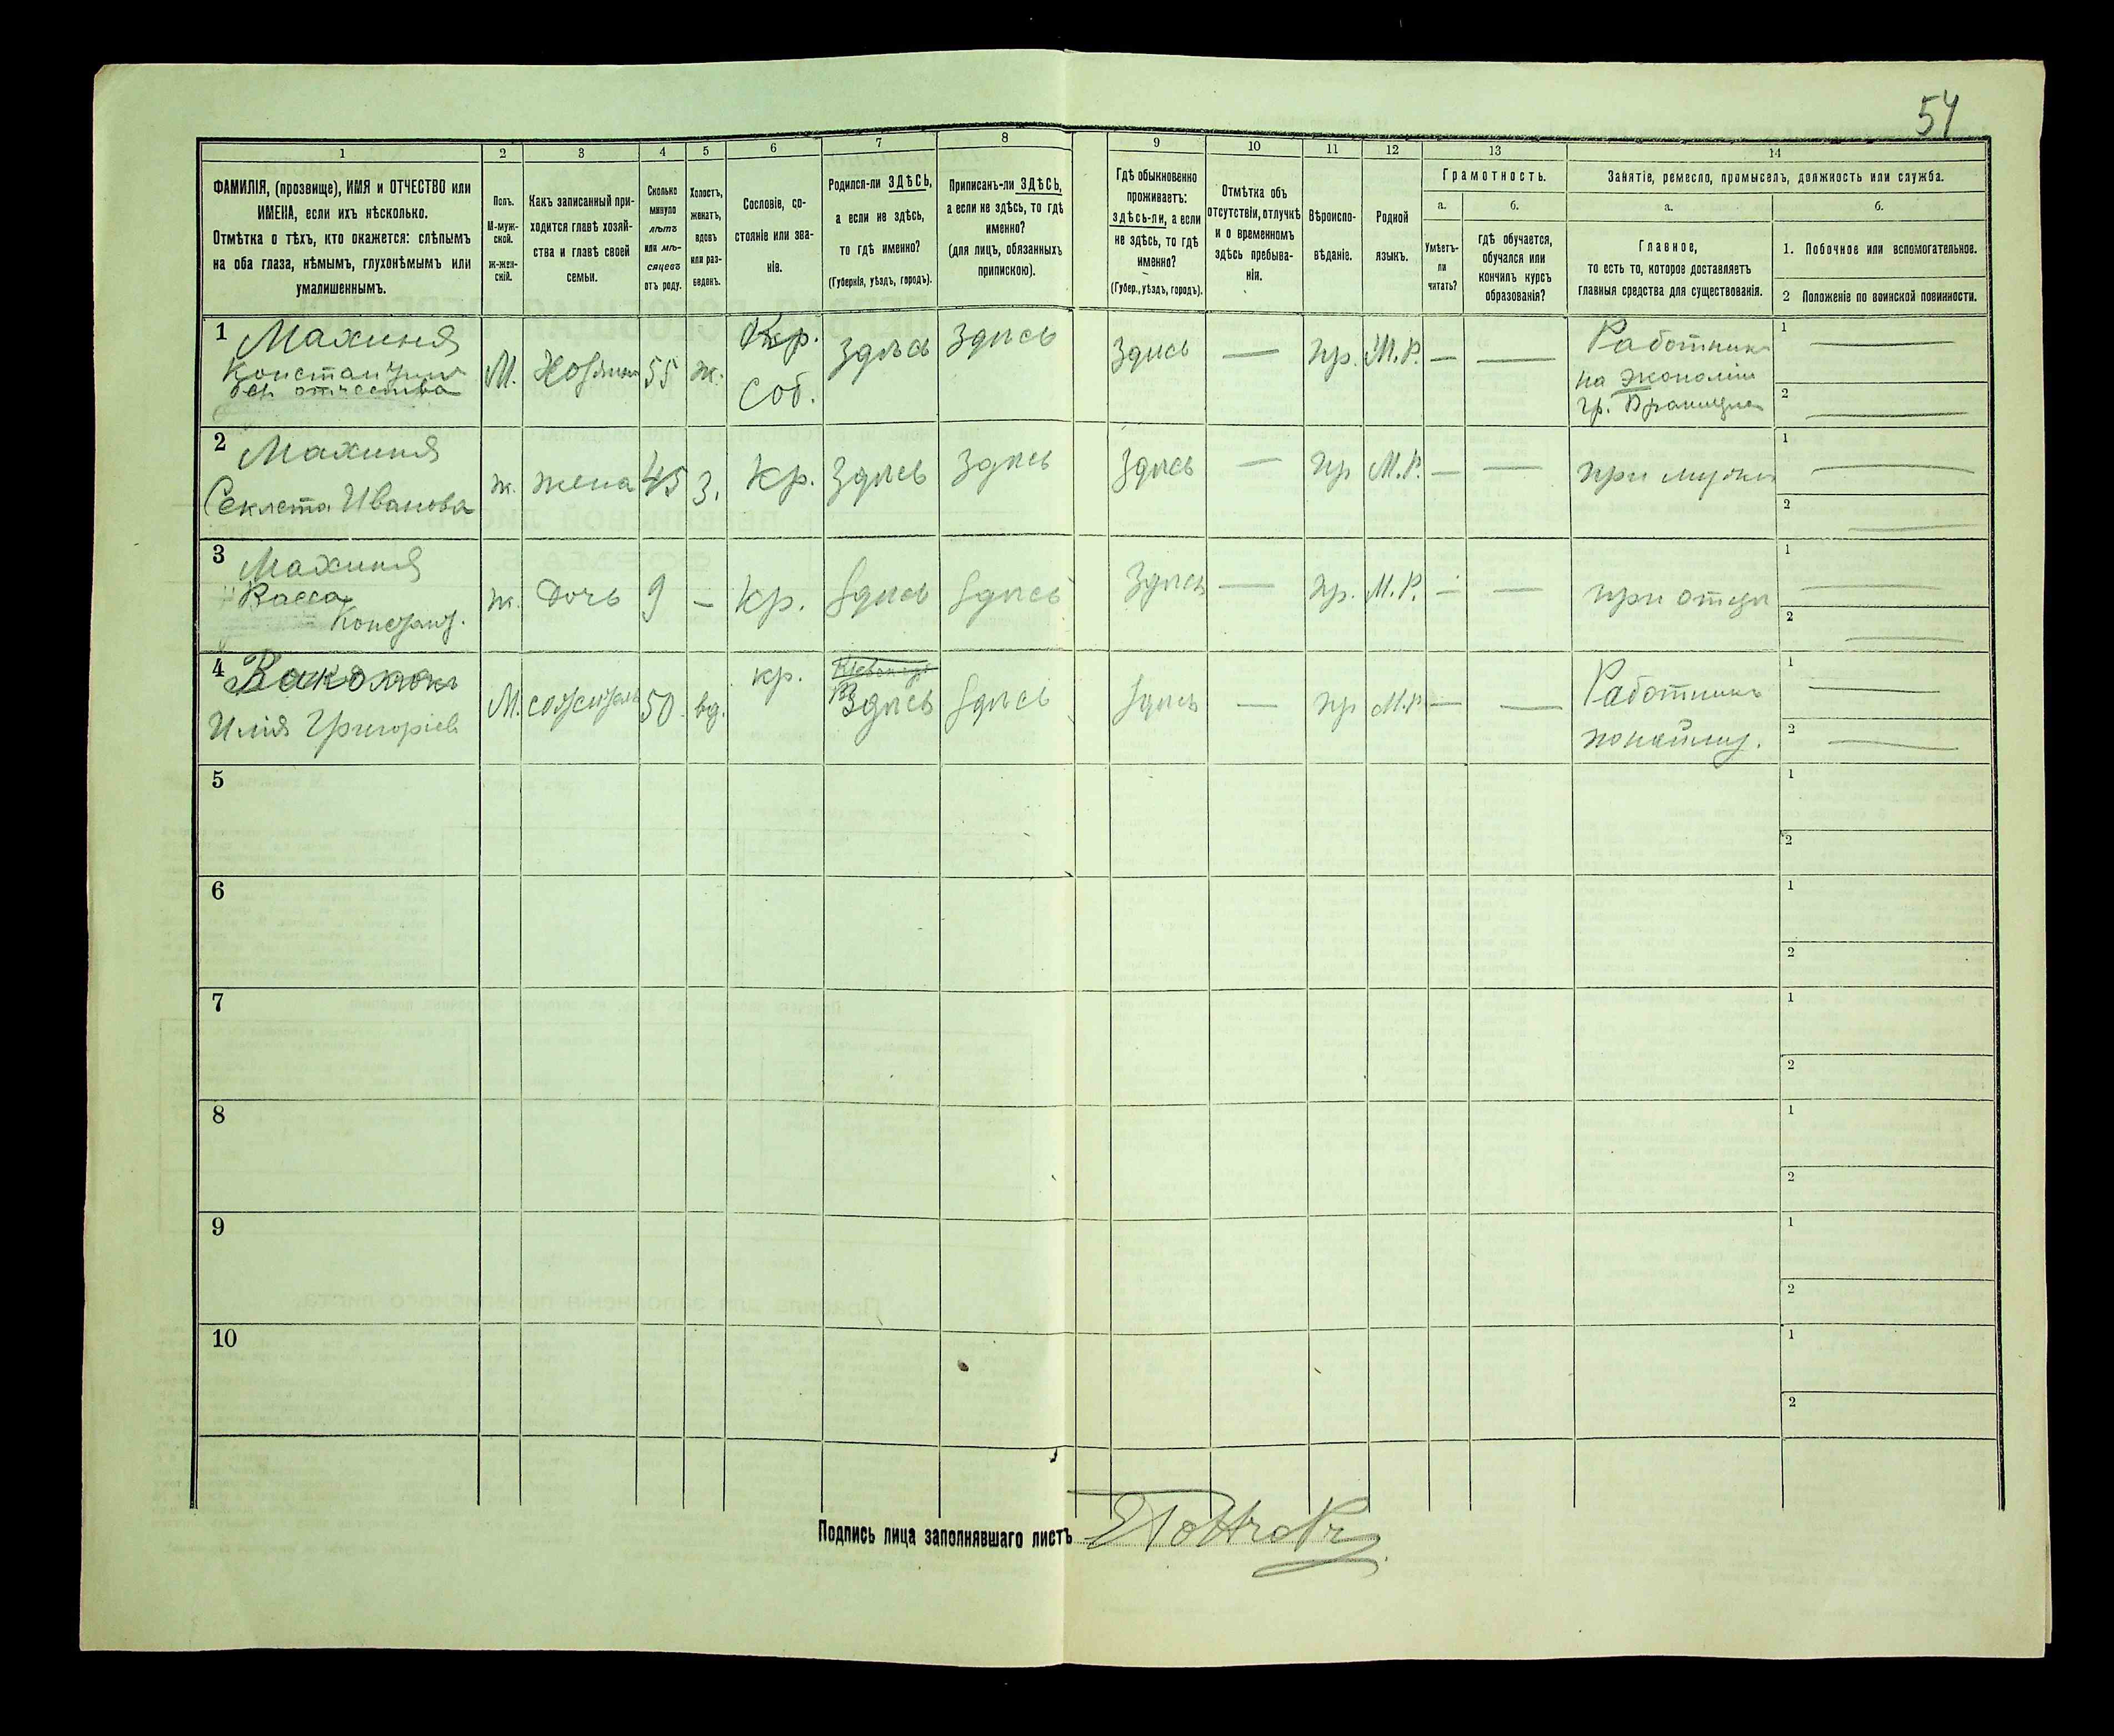 54
1
2
3
4
5
6
7
8
9
10
11
12
13
14
ФАМИЛІЯ, (прозвище), ИМЯ и ОТЧЕСТВО или
ИМЕНА, если ихъ нѣсколько.
Отмѣтка о тѣхъ, кто окажется: слѣпымъ
на оба глаза, нѣмымъ, глухонѣмымъ или
умалишеннымъ.
Полъ.
М-муж-
ской.
ж-жен-
скій.
Какъ записанный при-
ходится главѣ хозяй-
ства и главѣ своей
семьи.
Сколько
минуло
лѣтъ
или мѣ-
сяцевъ
отъ роду.
Холостъ,
женатъ,
вдовъ
или раз-
веденъ.
Сословіе, со-
стояніе или зва-
ніе.
Родился-ли ЗДѢСЬ,
а если не здѣсь,
то гдѣ именно?
(Губернія, уѣздъ, городъ).
Приписанъ-ли ЗДѢСЬ,
а если не здѣсь, то гдѣ
именно?
(для лицъ, обязанныхъ
припискою).
Гдѣ обыкновенно
проживаетъ:
здѣсь-ли, а если
не здѣсь, то гдѣ
именно?
(Губер., уѣздъ, городъ).
Отмѣтка объ
отсутствіи, отлучкѣ
и о временномъ
здѣсь пребыва-
ніи.
Вѣроиспо-
вѣданіе.
Родной
языкъ.
Грамотность.
а.
Умѣетъ-
ли
читать?
б.
гдѣ обучается,
обучался или
кончилъ курсъ
образованія?
Занятіе, ремесло, промыселъ, должность или служба.
а.
Главное,
то есть то, которое доставляетъ
главныя средства для существованія.
б.
1. Побочное или вспомогательное.
2 Положеніе по воинской повинности.
1 Махиня
Константинъ
безъ отчества
М.
Хозяинъ
55
ж.
Кр.
соб.
здѣсь
здѣсь
здѣсь
—
пр.
М.Р.
—
—
Работникъ
на экономіи
гр.
1 —
2 —
2 Махиня
Секлета Иванова
ж.
жена
45
з.
кр.
здѣсь
здѣсь
здѣсь
—
пр
М.Р.
—
—
при мужѣ
1 —
2 —
3 Махиня
Васса
Констант.
ж.
дочь
9
—
кр.
здѣсь
здѣсь
здѣсь
—
пр.
М.Р.
—
—
при отцѣ
1 —
2 —
4
Илія Григоріев
М.
50
вд.
кр.
здѣсь
здѣсь
здѣсь
—
пр
М.Р.
—
—
Работникъ
1 —
2 —
5
1
2
6
1
2
7
1
2
8
1
2
9
1
2
10
1
2
Подпись лица заполнявшаго листъ